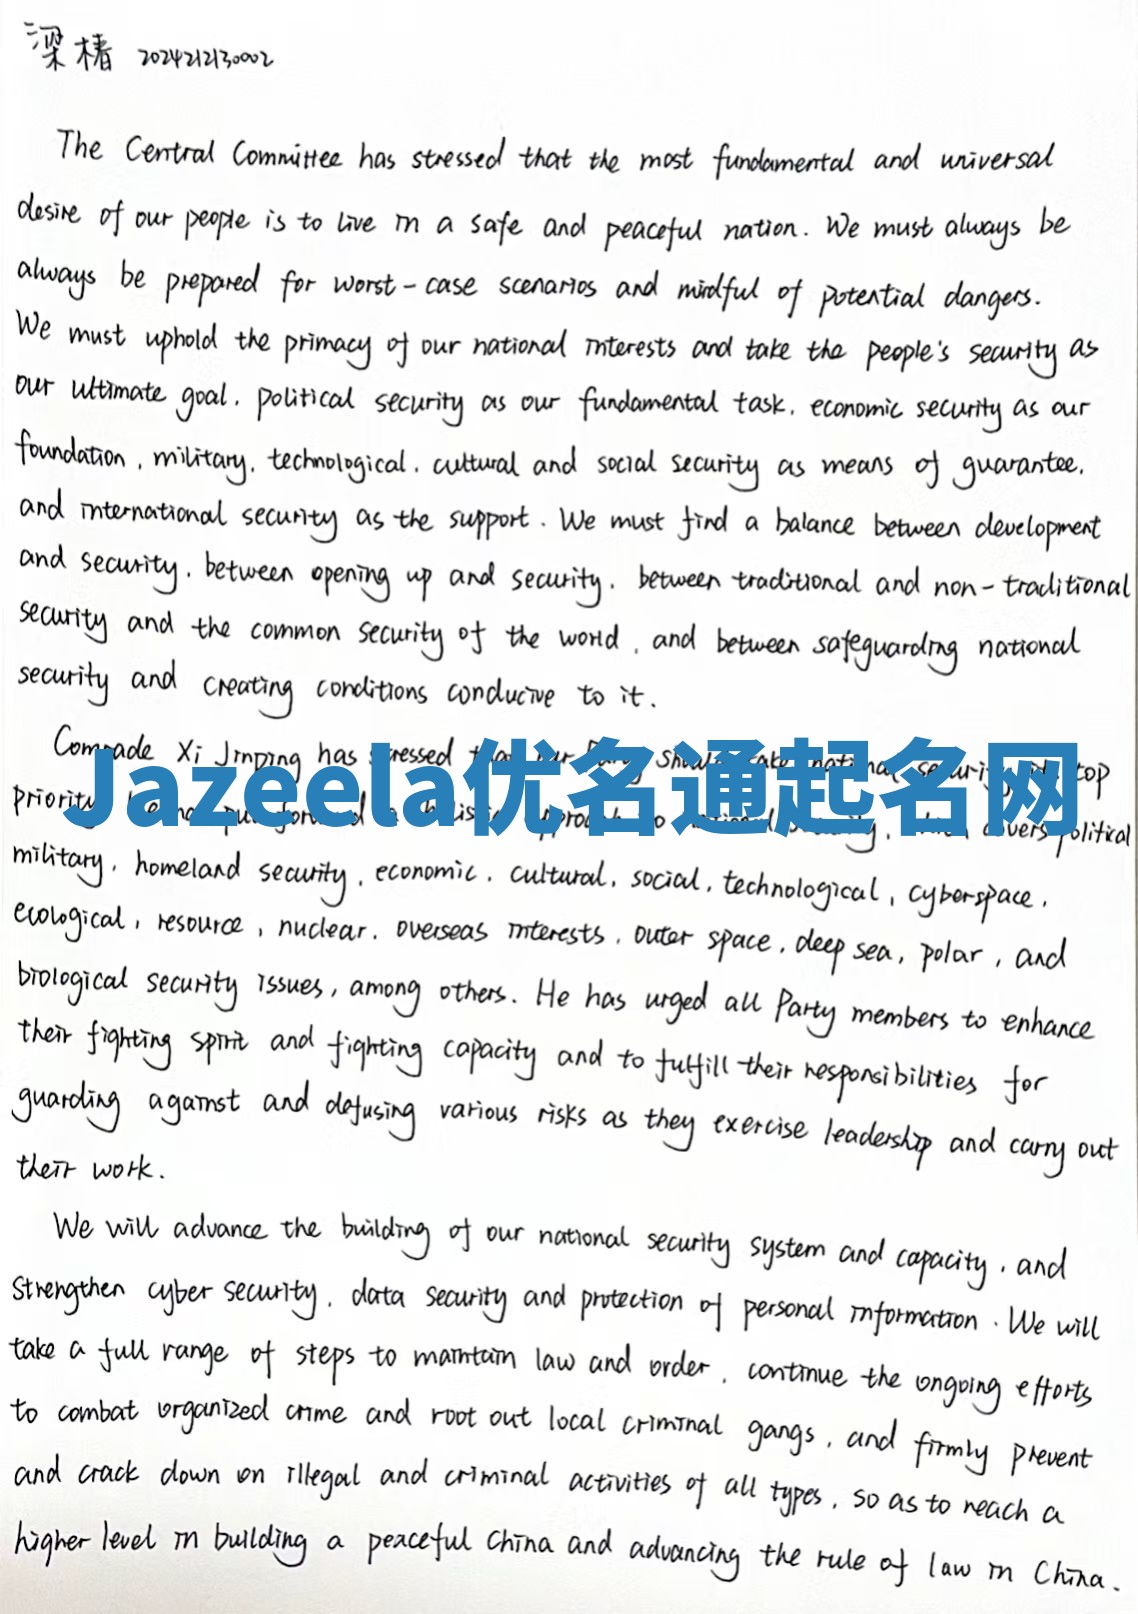 梁椿 2024212130002
The Central Committee has stressed that the most fundamental and universal
desire of our people is to live in a safe and peaceful nation. We must always be
always be prepared for worst-case scenarios and mindful of potential dangers.
We must uphold the primacy of our national interests and take the people's security as
our ultimate goal, political security as our fundamental task, economic security as our
foundation, military, technological, cultural and social security as means of guarantee,
and international security as the support. We must find a balance between development
and security, between opening up and security, between traditional and non-traditional
security and the common security of the world, and between safeguarding national
security and creating conditions conducive to it.
Comrade Xi Jinping has stressed national top
Jazeela优名通起名网
priority political
military, homeland security, economic, cultural, social, technological, cyberspace,
ecological, resource, nuclear, overseas interests, outer space, deep sea, polar, and
biological security issues, among others. He has urged all Party members to enhance
their fighting spirit and fighting capacity and to fulfill their responsibilities for
guarding against and defusing various risks as they exercise leadership and carry out
their work.
We will advance the building of our national security system and capacity, and
strengthen cyber security, data security and protection of personal information. We will
take a full range of steps to maintain law and order, continue the ongoing efforts
to combat organized crime and root out local criminal gangs, and firmly prevent
and crack down on illegal and criminal activities of all types, so as to reach a
higher level in building a peaceful China and advancing the rule of law in China.